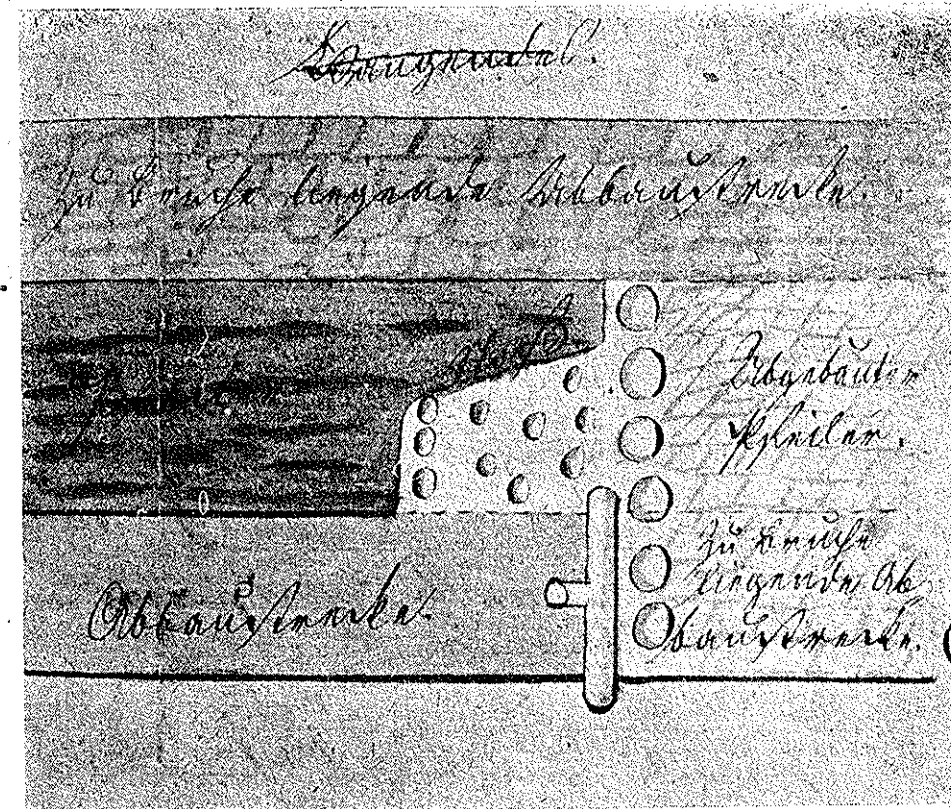 Hangendes.
Zu Bruche liegende Abbaustrecke.
Abgebauter
Pfeiler.
Zu Bruche
liegende Ab
baustrecke.
Abbaustrecke.